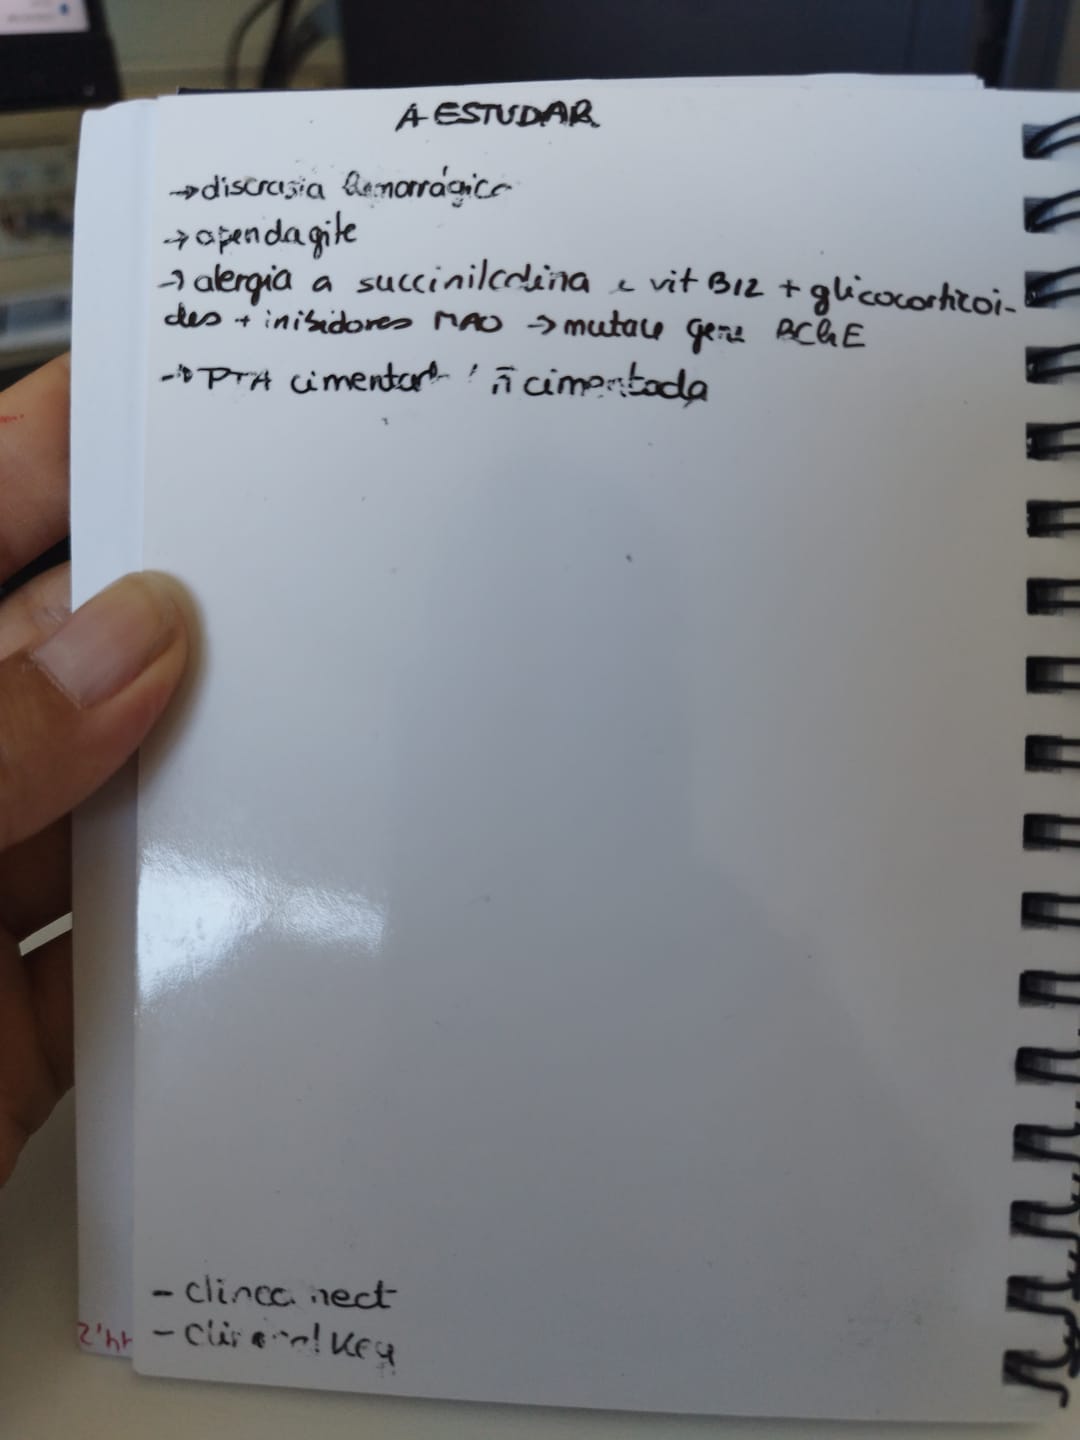 A ESTUDAR
→ discrasia hemorrágica
→ apendagite
→ alergia a succinilcolina e vit B12 + glicocorticoi-
des + inibidores MAO → mutação gene BChE
→ PTA cimentada / ñ cimentada
- clinccanect
- Clinical Key
44,2